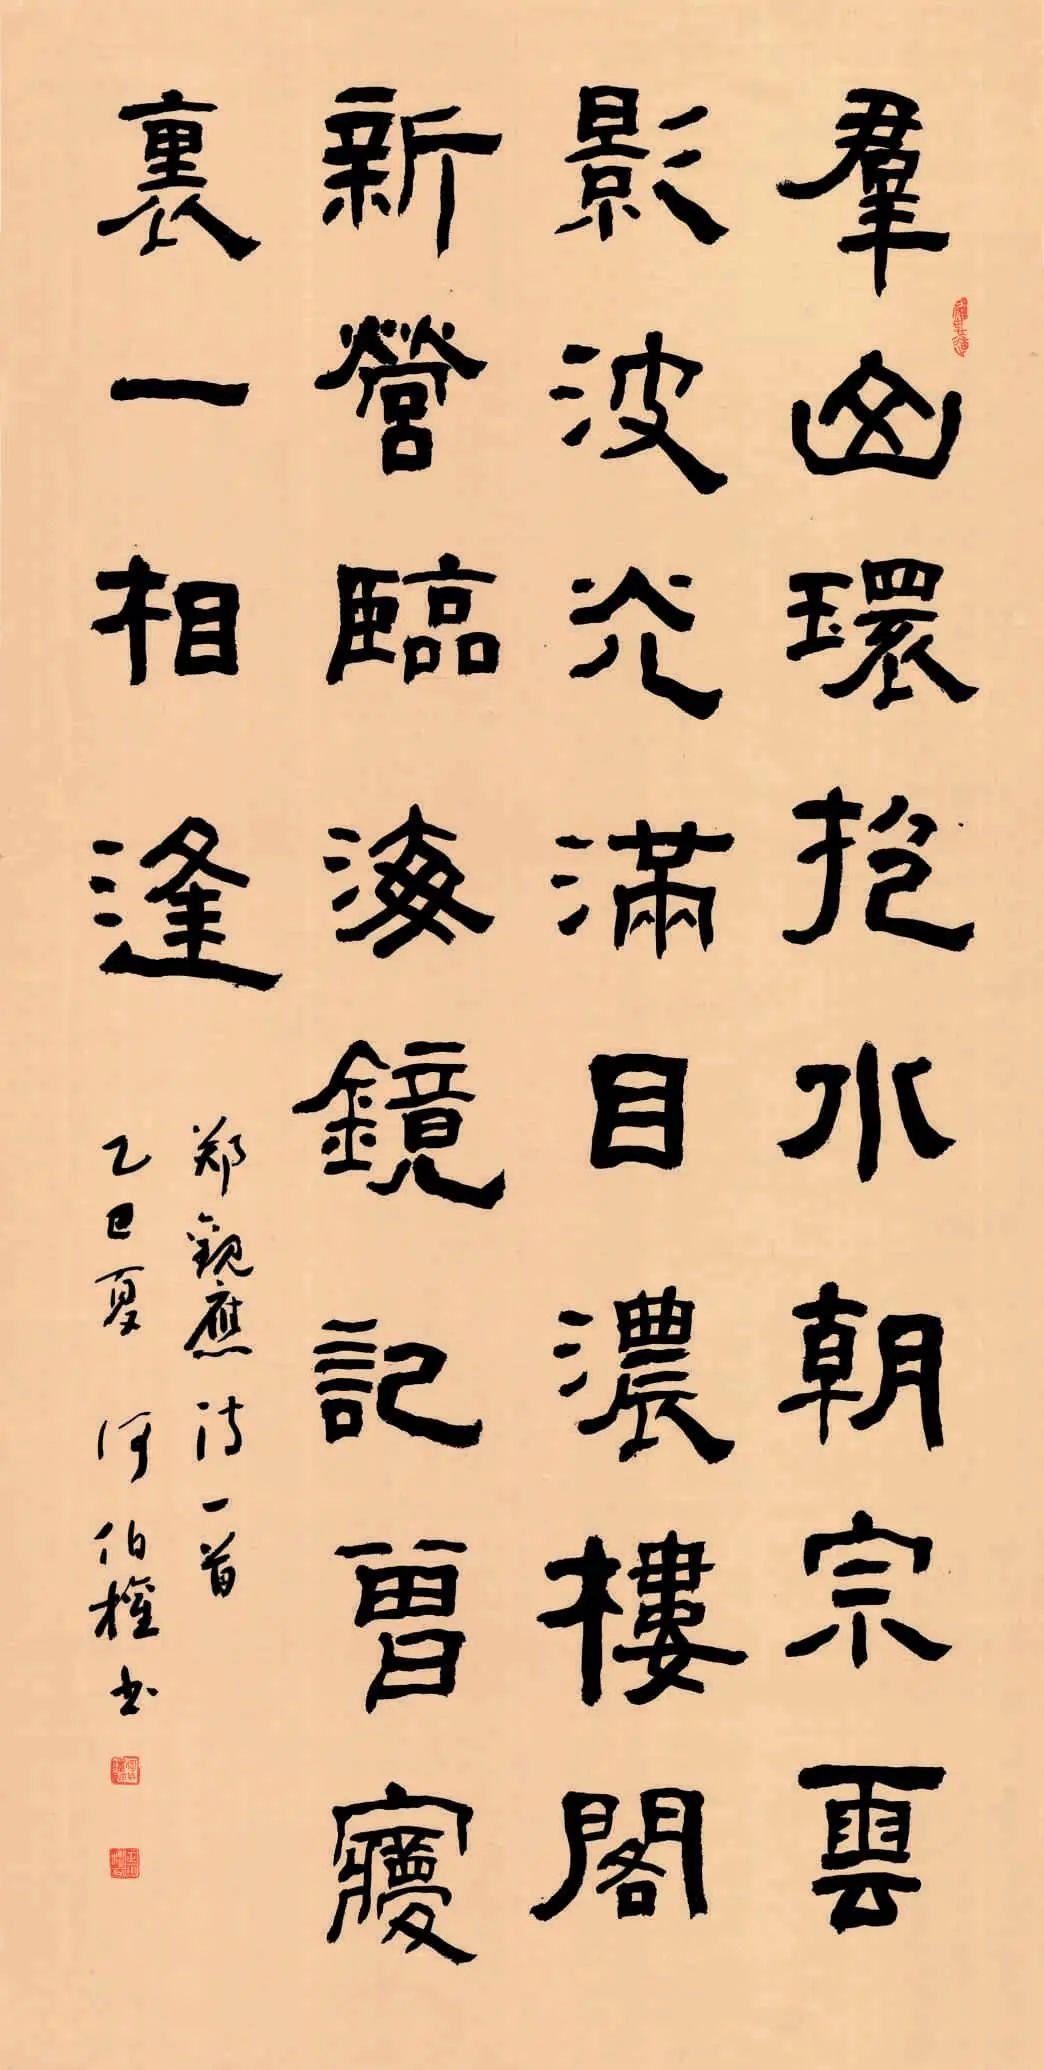 羣山環抱水朝宗雲
影波光滿目濃樓閣
新營臨海鏡記曾寱
裏一相逢
郑觀應诗一首
乙巳夏 何伯權书